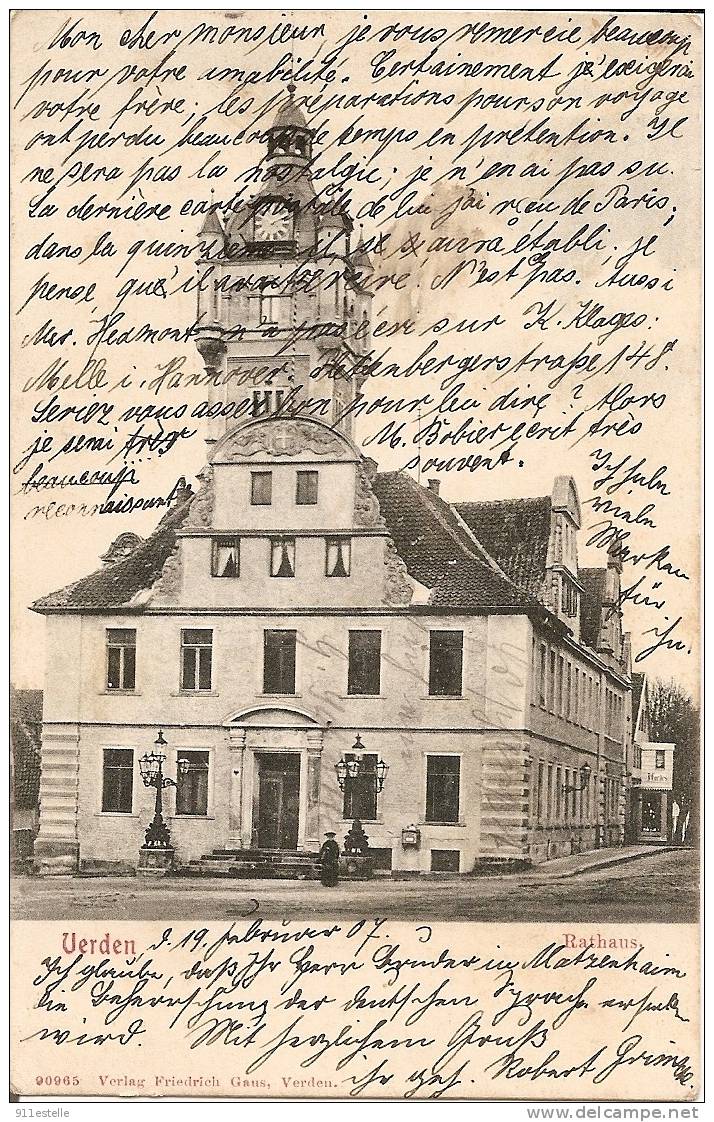 Mon cher monsieur, je vous remercie beaucoup
pour votre amabilité. Certainement j'exigerai
votre frère; les préparations pour son voyage
ont perdu beaucoup de temps en prétention. Il
ne sera pas la nostalgie; je n'en ai pas su.
La dernière carte de lui j'ai reçu de Paris;
dans la quinzaine il se aura établi. je
pense, qu'il avait écire. N'est pas. Aussi
Mr. Hedmont n'a pas écri sur K. Klages:
Melle i. Hannover. Plettenbergerstraße 148.
Seriez vous assez bon pour lui dire? Alors
je serai très M. Bobier écrit très
beaucoup souvent.
reconnaissant
Ich habe
viele
Marken
für
ihn.
Harles
Verden d. 19. Februar 07.
Rathaus.
Ich glaube, daß Ihr Herr Bruder in Matzenheim
die Beherrschung der deutschen Sprache erhalten
wird. Mit herzlichem Gruß
ihr geh. Robert
90965 Verlag Friedrich Gaus, Verden.
911estelle
www.delcampe.net